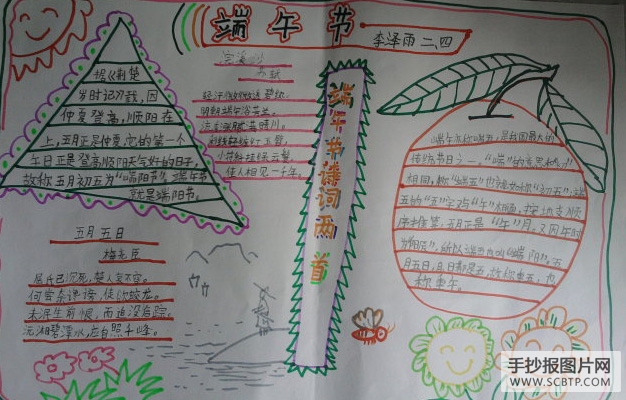 端午节
李泽雨 二、四
据《荆楚
岁时记》载，因
仲夏登高，顺阳在
上，五月正是仲夏，它的第一个
午日正是登高顺阳天气好的日子，
故称五月初五为“端阳节”。端午节
就是端阳节。
浣溪沙
苏轼
轻汗微微透碧纨
明朝端午浴芳兰
流香涨腻满晴川
彩线轻缠红玉臂
小符斜挂绿云鬟
佳人相见一千年
端午节诗词两首
五月五日
梅尧臣
屈氏已沉死，楚人哀不容。
何尝奈谗谤，徒欲却蛟龙。
未泯生前恨，而追没后踪。
沅湘碧潭水，应自照千峰。
端午亦称端五，是我国最大的
传统节日之一，“端”的意思和“初”
相同，称“端五”也就如称“初五”；端
五的“五”字鸡“午”相通，按地支顺
序推算，五月正是“午”月。又因午时
为“阳辰”，所以端五也叫“端阳”。五
月五日，月日都是五，故称重五，也
称重午。
手抄报图片网
WWW.SCBTP.COM